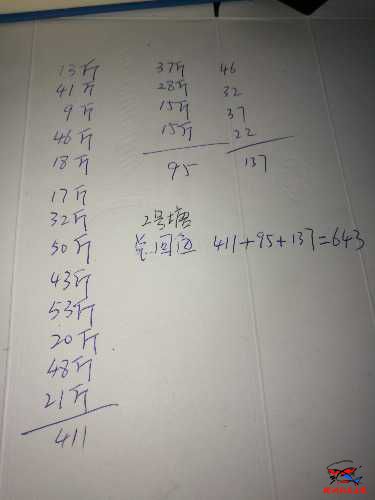 13斤
41斤
9斤
46斤
18斤
17斤
32斤
50斤
43斤
53斤
20斤
48斤
21斤
411
37斤
28斤
15斤
15斤
95
46
32
37
22
137
2号塘
总回鱼 411+95+137=643